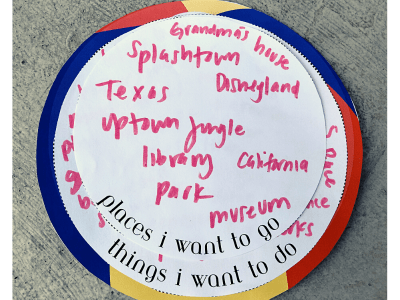 Grandma's house
Splashtown
Disneyland
Texas
uptown jungle
library
California
park
museum
places i want to go
things i want to do